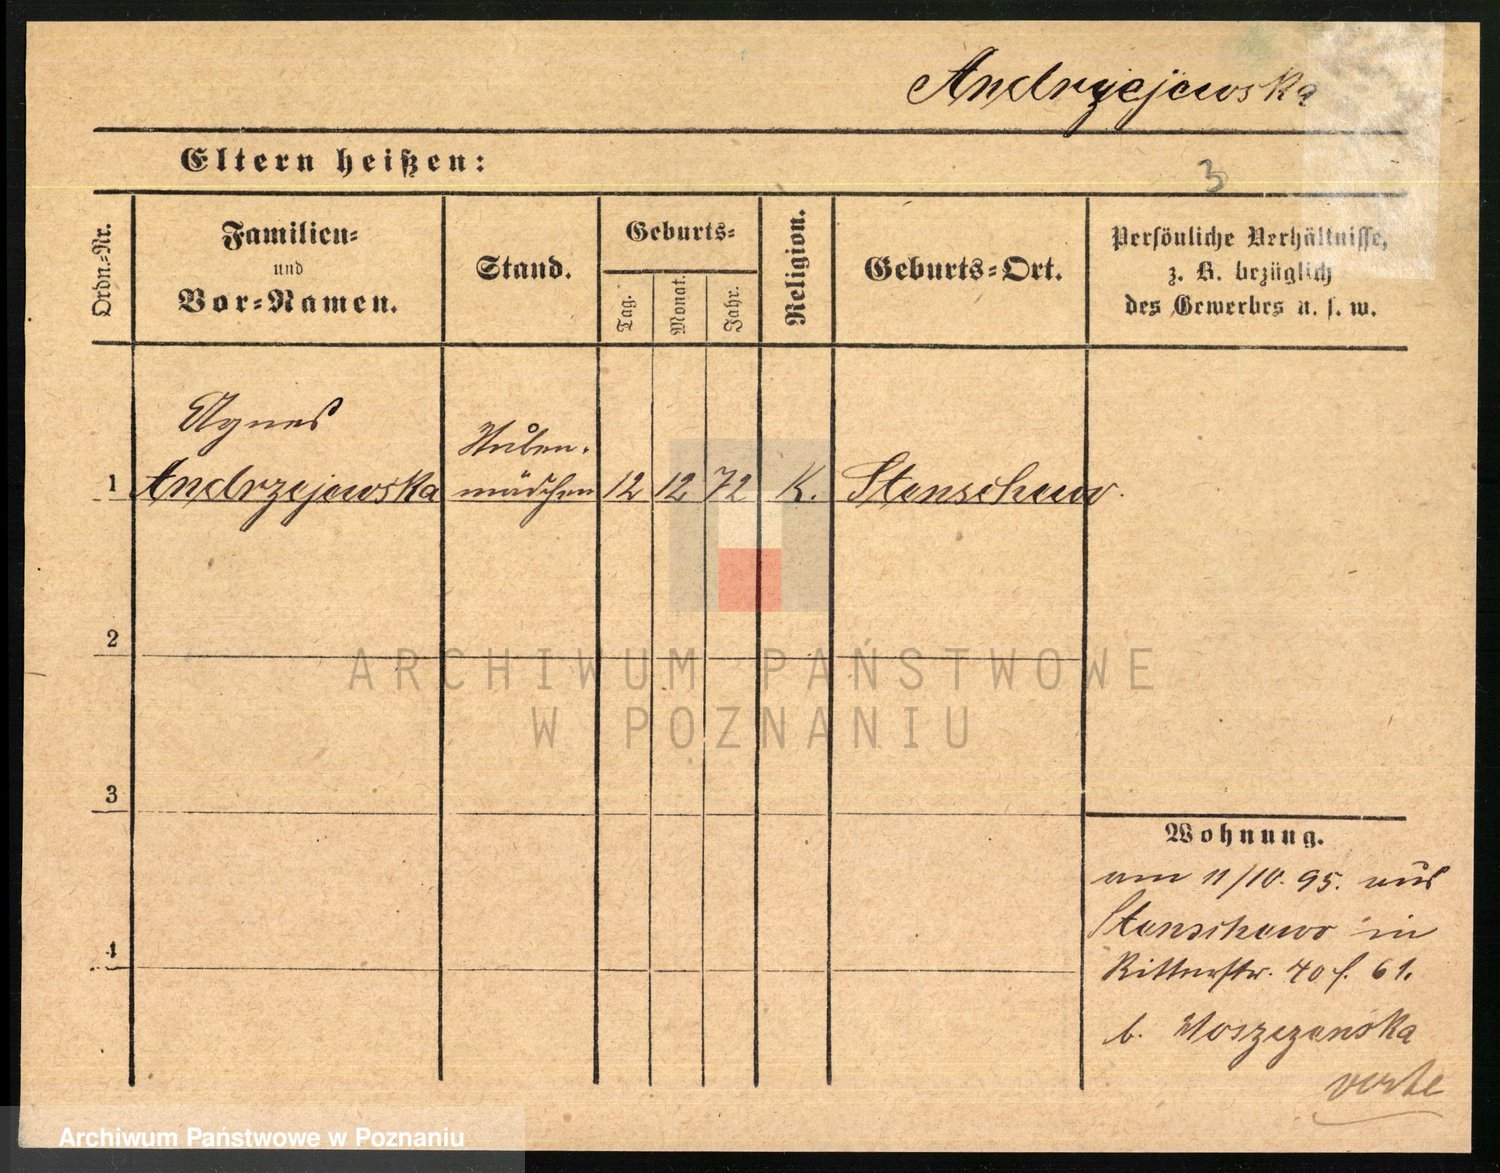 Andrzejewska
Eltern heißen:
3
Ordn.-Nr.
Familien-
und
Vor-Namen.
Stand.
Geburts-
Tag.
Monat.
Jahr.
Religion.
Geburts-Ort.
Persönliche Verhältnisse,
z. B. bezüglich
des Gewerbes u. s. w.
Agnes
Stuben-
1 Andrzejewska mädchen 12 12 72 K.
2
3
4
Wohnung.
am 11/10. 95. aus
in
Ritterstr. 40
b.
verte
ARCHIWUM PAŃSTWOWE
W POZNANIU
Archiwum Państwowe w Poznaniu